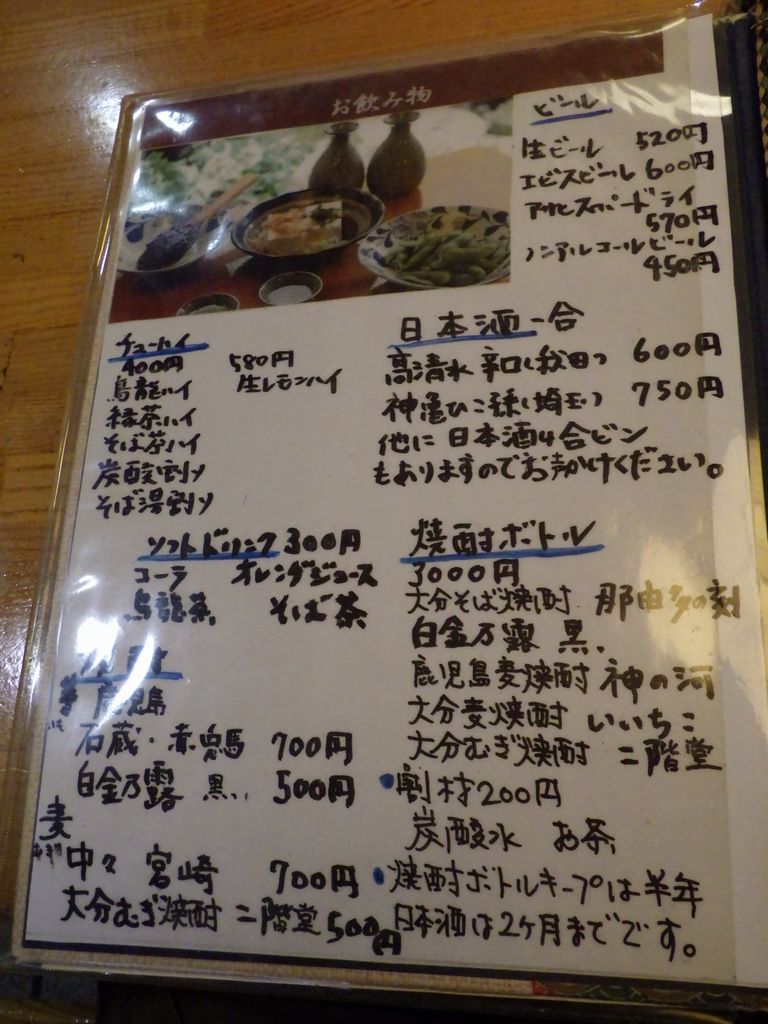 お飲み物
ビール
生ビール 520円
エビスビール 600円
アサヒスーパードライ
570円
ノンアルコールビール
450円
チューハイ
400円
烏龍ハイ
緑茶ハイ
そば茶ハイ
炭酸割り
そば湯割り
580円
生レモンハイ
日本酒一合
高清水 辛口(秋田) 600円
神亀ひこ孫(埼玉) 750円
他に日本酒4合ビン
もありますのでお声かけください。
ソフトドリンク 300円
コーラ オレンヂジュース
烏龍茶 そば茶
焼酎ボトル
3000円
大分そば焼酎 那由多の刻
白金乃露 黒
鹿児島麦焼酎 神の河
大分麦焼酎 いいちこ
大分むぎ焼酎 二階堂
・割材200円
炭酸水 お茶
・焼酎ボトルキープは半年
日本酒は2ヶ月までです。
鹿児島
石蔵・赤兎馬 700円
白金乃露 黒 500円
麦
中々 宮崎 700円
大分むぎ焼酎 二階堂 500円